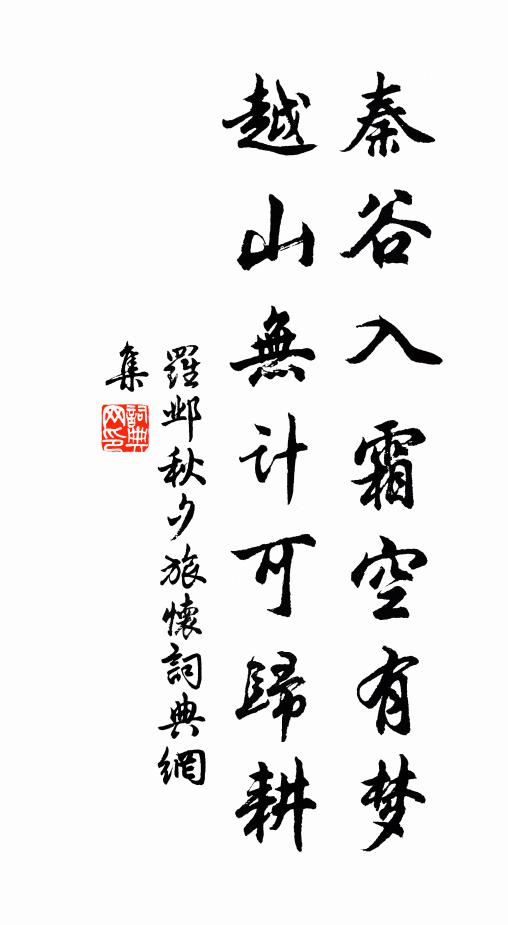 秦谷入霜空有梦
越山無计可歸耕
羅邺秋夕旅懷詞典網
集
詞典
网印